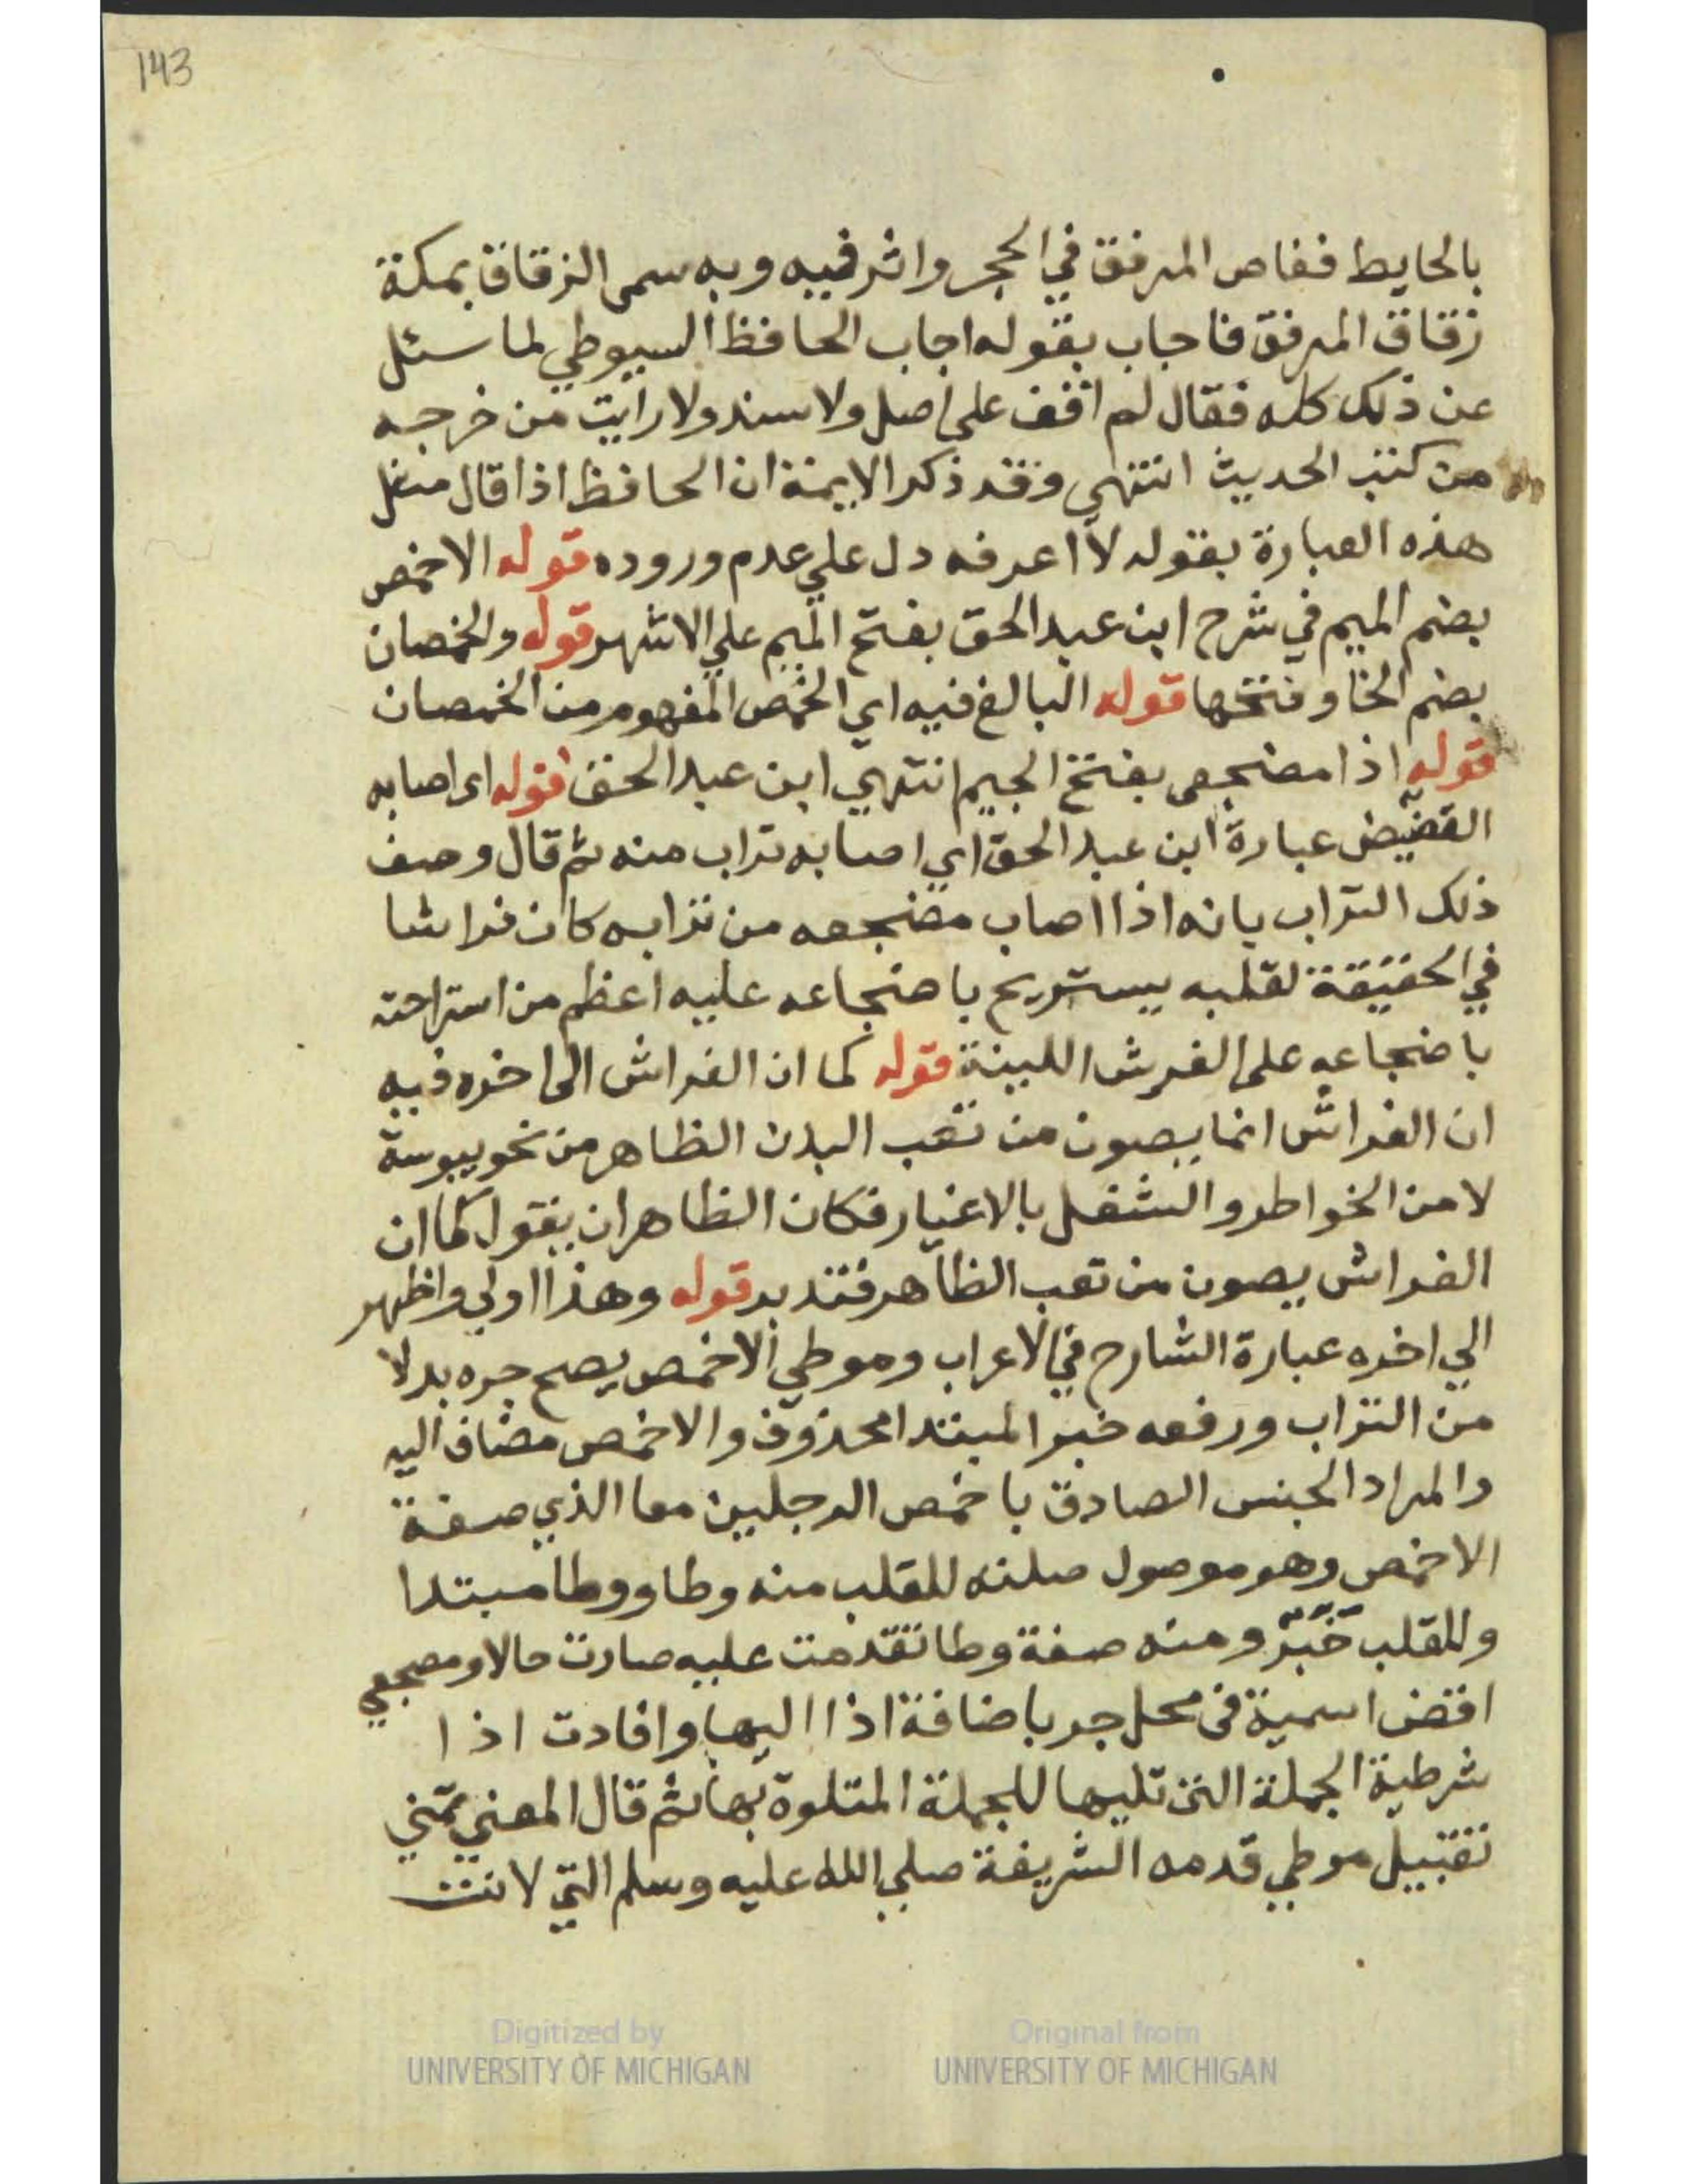 143
بالحايط فغاص المرفق في الحجر واثر فيه وبه سمى الزقاق بمكة
زقاق المرفق فاجاب بقوله اجاب الحافظ السيوطي لما سئل
عن ذلك كله فقال لم اقف على اصل ولا سند ولا رايت من خرجه
من كتب الحديث انتهى وقد ذكر الايمة ان الحافظ اذا قال مثل
هذه العبارة بقوله لا اعرفه دل علي عدم وروده قوله الاخمص
بضم الميم في شرح ابن عبد الحق بفتح الميم علي الاشهر قوله والخمصان
بضم الخا وفتحها قوله البالغ فيه اي الخمص المفهوم من الخمصان
قوله اذا مضجعى بفتح الجيم انتهي ابن عبد الحق قوله اى اصابه
القضيض عبارة ابن عبد الحق اي اصابه تراب منه ثم قال وصف
ذلك التراب بانه اذا اصاب مضجعه من ترابه كان فراشا
في الحقيقة لقلبه يستريح باضجاعه عليه اعظم من استراحته
باضجاعه على الفرش اللينة قوله كما ان الفراش الى اخره فيه
ان الفراش انما يصون من تعب البدن الظاهر من نحو يبوسة
لا من الخواطر والشغل بالاغيار فكان الظاهر ان يقول كما ان
الفراش يصون من تعب الظاهر فتدبر قوله وهذا اولي واظهر
الي اخره عبارة الشارح في الاعراب وموطي الاخمص يصح جره بدلا
من التراب ورفعه خبر المبتدا محذوف والاخمص مضاف اليه
والمراد الجنس الصادق باخمص الرجلين معا الذي صفة
الاخمص وهو موصول صلته للقلب منه وطا ووطا مبتدا
وللقلب خبر ومنه صفة وطا تقدمت عليه صارت حالا ومضجعي
اقض اسمية في محل جر باضافة اذا اليها وافادت اذا
شرطية الجملة التى تليها للجملة المتلوة بها ثم قال المعني تمني
تقبيل موطي قدمه الشريفة صلي الله عليه وسلم التي لانت
Digitized by
UNIVERSITY OF MICHIGAN
Original from
UNIVERSITY OF MICHIGAN